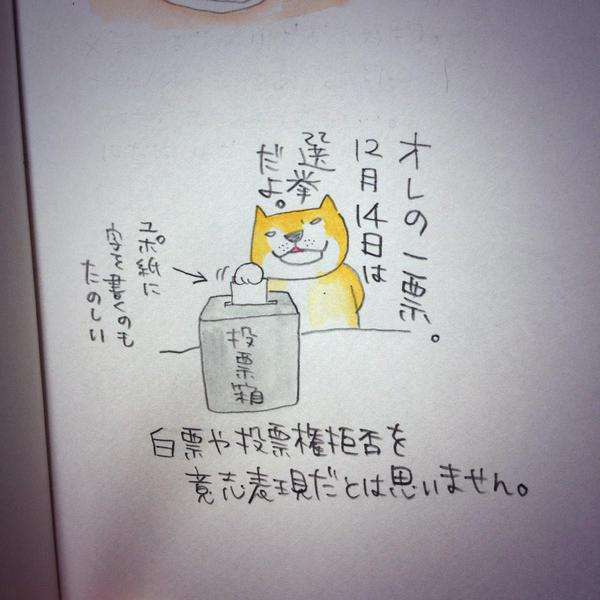 オレの一票。
12月14日は
選挙
だよ。
ユポ紙に
字を書くのも
たのしい
投票箱
白票や投票権拒否を
意志表現だとは思いません。